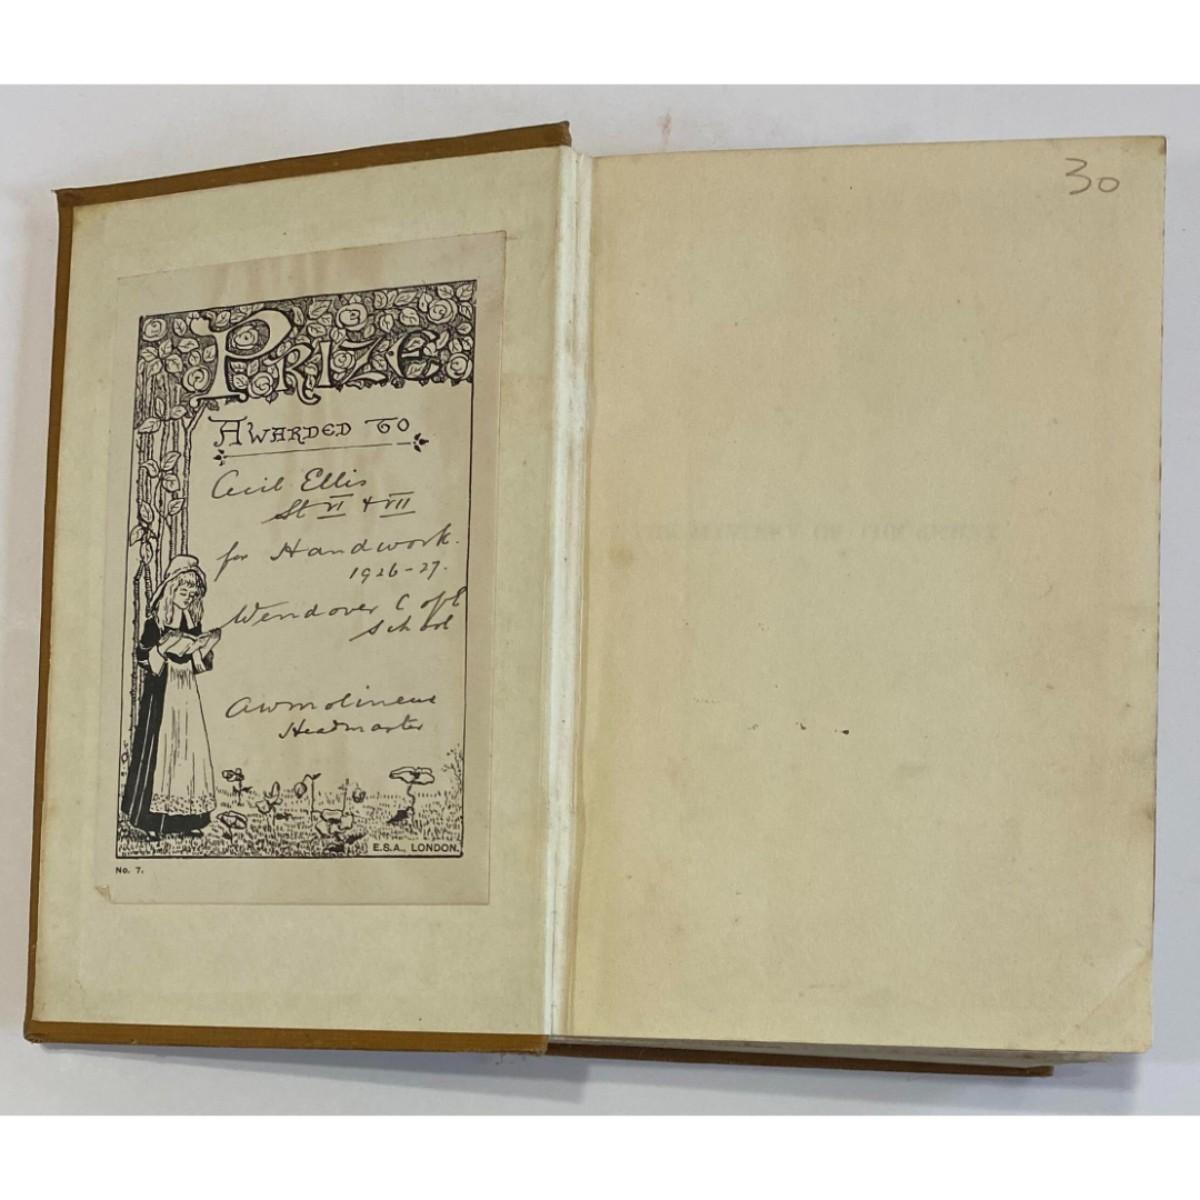 PRIZE
AWARDED TO
Cecil Ellis
St VI & VII
for Handwork.
1926-27.
Wendover C of E
School
AWMolineux
Headmaster
E.S.A., LONDON.
No. 7.
30